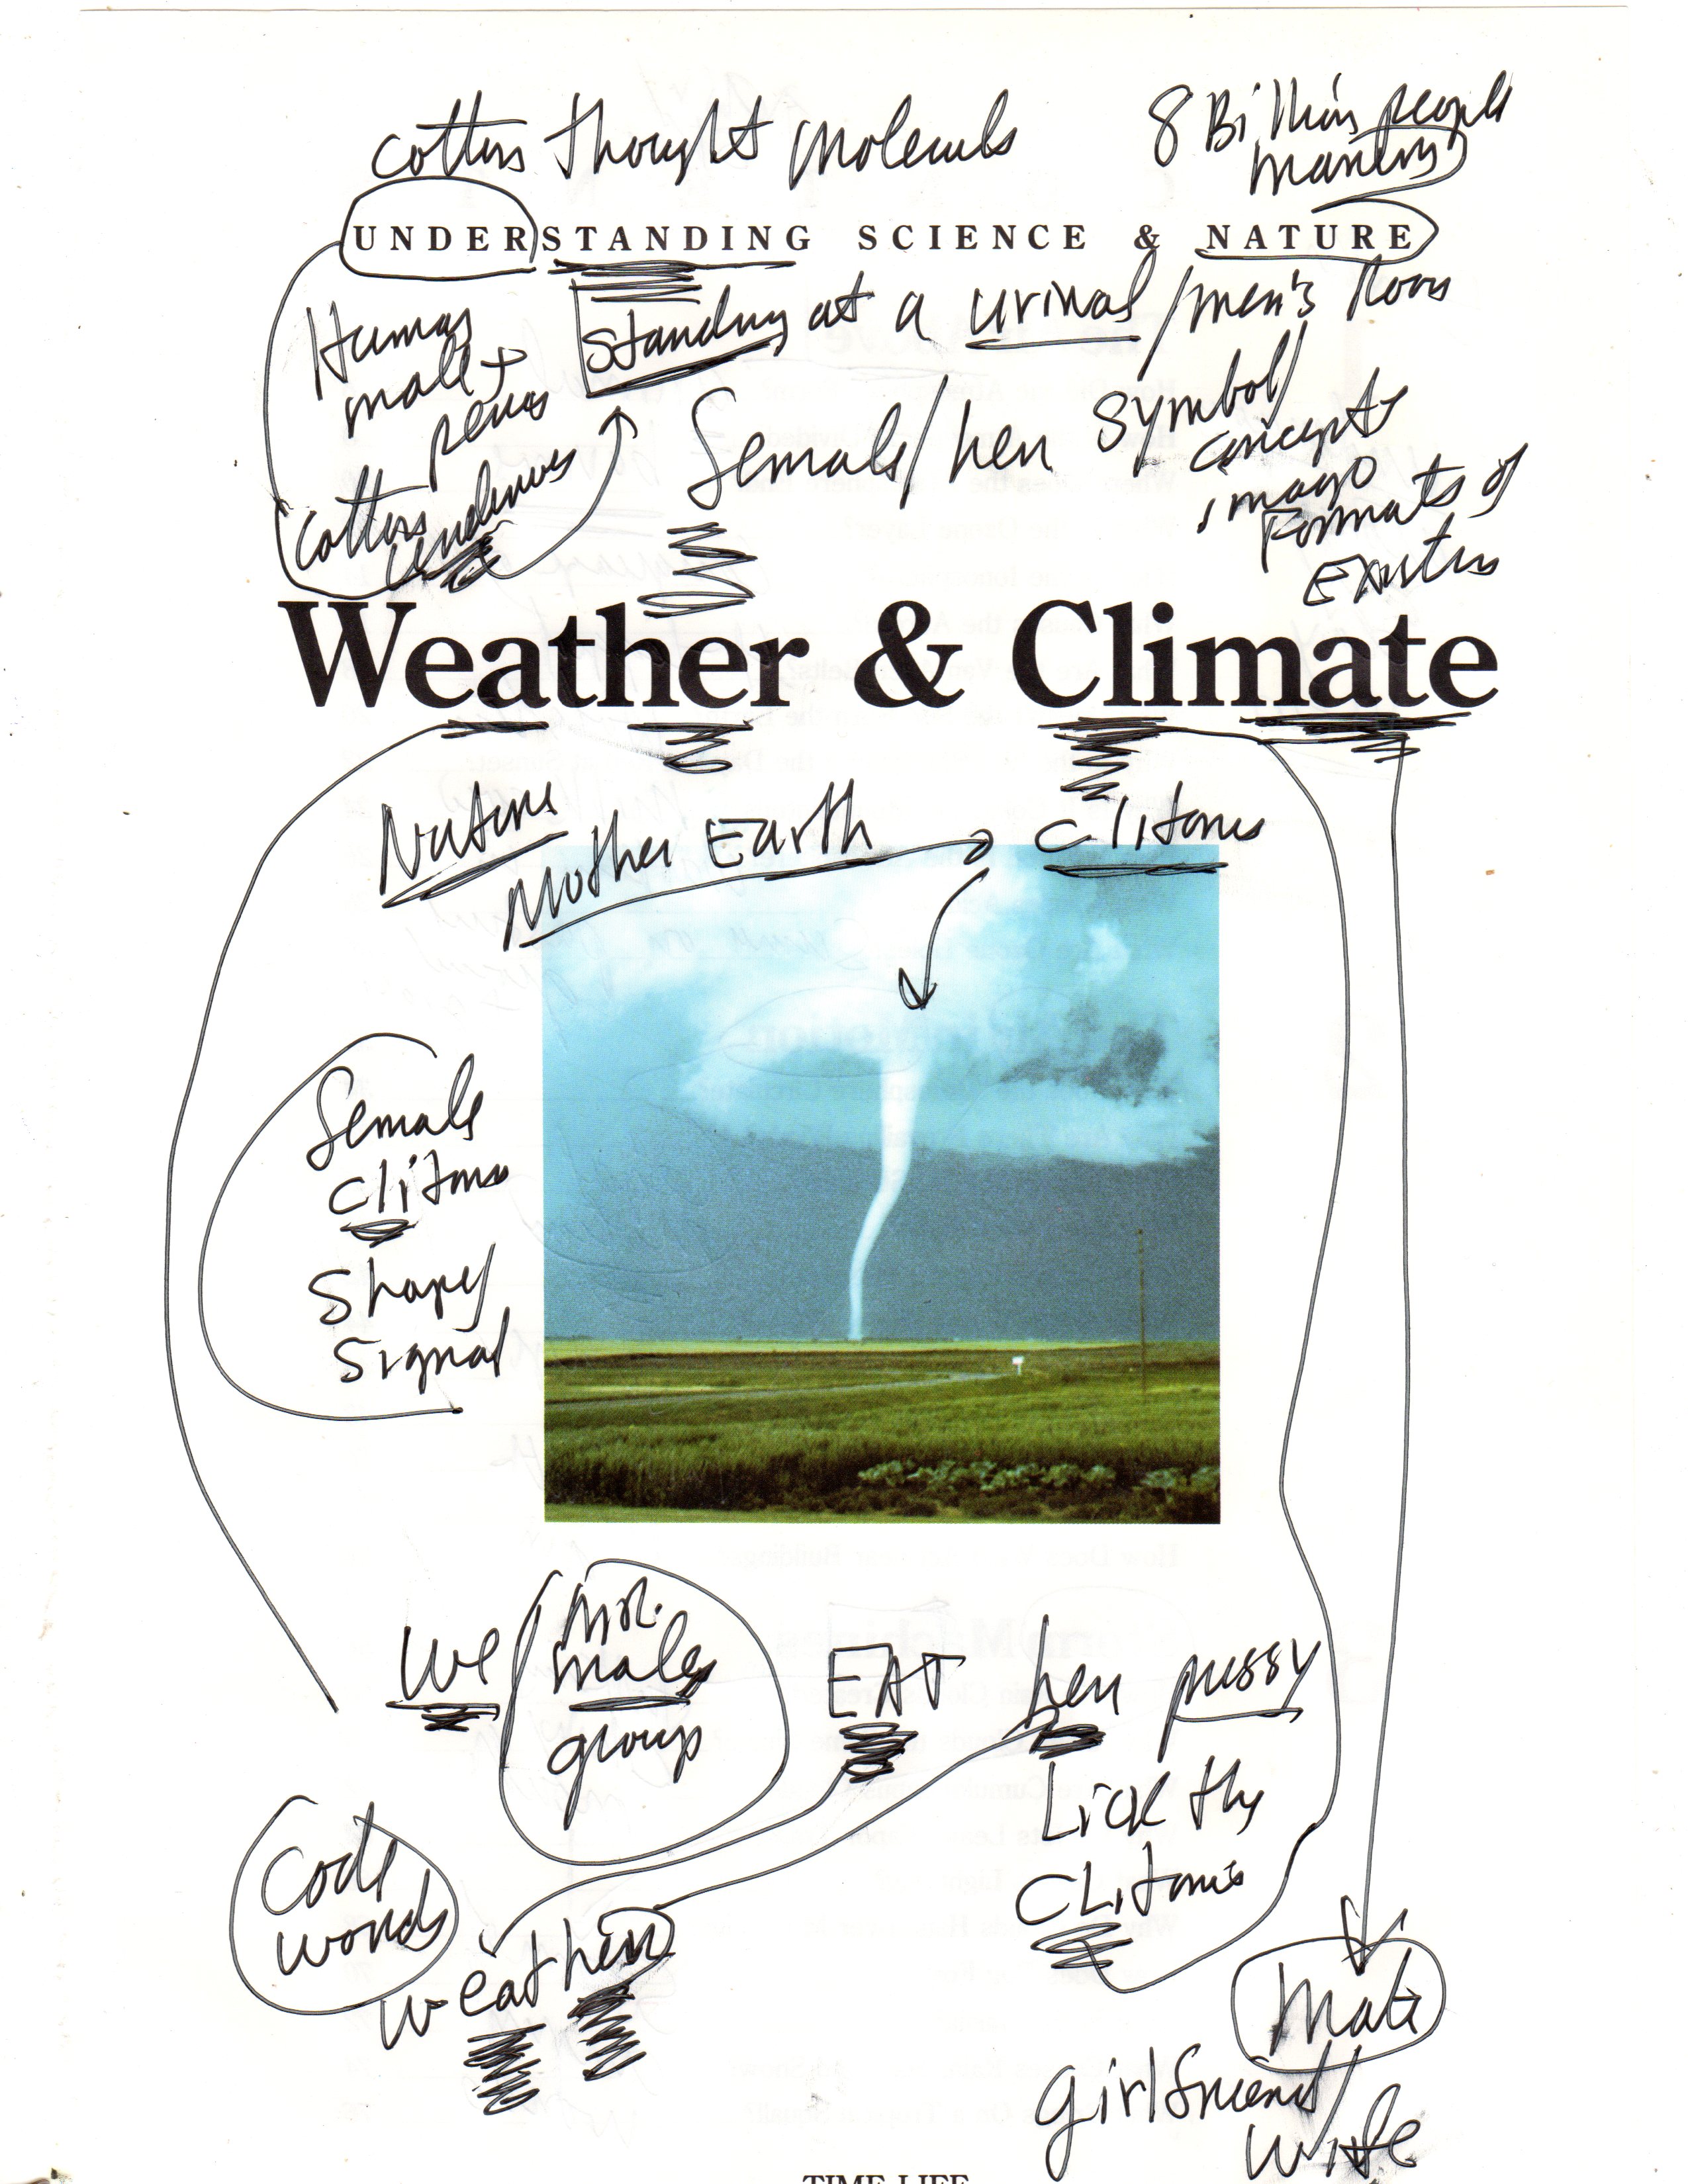 Cotters thought molecule
8 Billion people
mastery
UNDERSTANDING SCIENCE & NATURE
Human
male +
penis
standing at a urinal / men's room
female / her
symbol /
concepts
image
formats of
Cotters
Weather & Climate
Nature
Mother Earth
clitoris
female
clitoris
shape /
signal
we / mr.
males
group
EAT her pussy
Lick the
CLitoris
Code
words
weather
Mate
girlfriend /
wife
TIME-LIFE